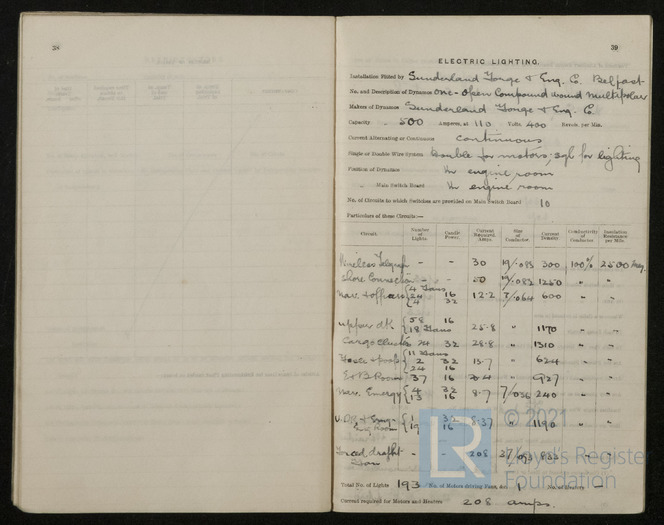 38
39
ELECTRIC LIGHTING.
Installation Fitted by Sunderland Forge & Eng. C. Belfast
No. and Description of Dynamos One - Open Compound wound multipolar
Makers of Dynamos Sunderland Forge & Eng. C.
Capacity 500 Amperes, at 110 Volts 400 Revols. per Min.
Current Alternating or Continuous Continuous
Single or Double Wire System Double for motors, sgl for lighting
Position of Dynamos In engine room
" Main Switch Board In engine room
No. of Circuits to which Switches are provided on Main Switch Board 10
Particulars of these Circuits:—
Circuit. Number of Lights. Candle Power. Current Required. Amps. Size of Conductor. Current Density. Conductivity of Conductor. Insulation Resistance per Mile.
Wireless Telegraph - - 30 19/.083 300 100% 2500 meg.
Shore Connection - - 50 19/.083 1250 " "
4 Fans
Nav. & officers 24 16 12.2 7/.064 600 " "
4 32
58 16
Upper dk 18 Fans 25.8 " 1170 " "
Cargo Clusters 24 32 28.8 " 1310 " "
11 Fans
2 32 13.7 " 624 " "
24 16
E & B Room 37 16 " 927 " "
Nav. Emergy 4 32 8.7 7/036 240 " "
13 16
1 32
Eng Room 19 16 8.37 " 1190 " "
Forced draft Fan - - 208 37/.093 833 " "
Total No. of Lights 193 No. of Motors driving Fans, &c. 1 No. of Heaters -
Current required for Motors and Heaters 208 amps.
LR
© 2021
Lloyd's Register
Foundation